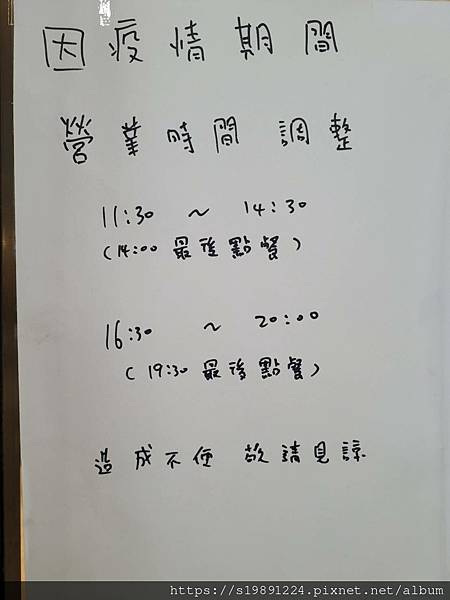 因疫情期間
營業時間 調整
11:30 ~ 14:30
(14:00 最後點餐)
16:30 ~ 20:00
(19:30 最後點餐)
造成不便 敬請見諒
https://s19891224.pixnet.net/album